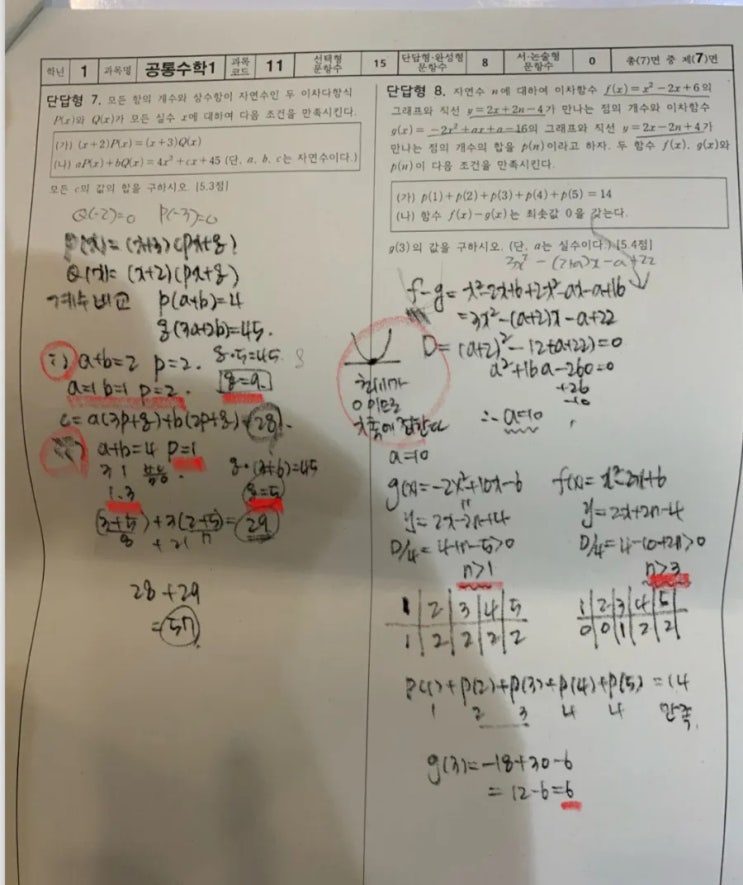 학년 1 과목명 공통수학1 과목코드 11 선택형 문항수 15 단답형·완성형 문항수 8 서·논술형 문항수 0 총(7)면 중 제(7)면
단답형 7. 모든 항의 계수와 상수항이 자연수인 두 이차다항식
P(x)와 Q(x)가 모든 실수 x에 대하여 다음 조건을 만족시킨다.
(가) (x+2)P(x)=(x+3)Q(x)
(나) aP(x)+bQ(x)=4x²+cx+45 (단, a, b, c는 자연수이다.)
모든 c의 값의 합을 구하시오. [5.3점]
Q(-2)=0 P(-3)=0
P(x)=(x+3)(px+8)
Q(x)=(x+2)(px+8)
계수비교 p(a+b)=4
8(3a+2b)=45.
i) a+b=2 p=2. 8·5=45
a=1 b=1 p=2. 8=9.
c=a(3p+8)+b(2p+8)=28.
a+b=4 p=1
3 1
1.3
8=5
=29
28+29
=57
단답형 8. 자연수 n에 대하여 이차함수 f(x)=x²-2x+6의
그래프와 직선 y=2x+2n-4가 만나는 점의 개수와 이차함수
g(x)=-2x²+ax+a-16의 그래프와 직선 y=2x-2n+4가
만나는 점의 개수의 합을 p(n)이라고 하자. 두 함수 f(x), g(x)와
p(n)이 다음 조건을 만족시킨다.
(가) p(1)+p(2)+p(3)+p(4)+p(5)=14
(나) 함수 f(x)-g(x)는 최솟값 0을 갖는다.
g(3)의 값을 구하시오. (단, a는 실수이다.) [5.4점]
3x²-(2+a)x-a+22
f-g=x²-2x+6+2x²-ax-a+16
=3x²-(a+2)x-a+22
D=(a+2)²-12(-a+22)=0
a²+16a-260=0
+26
-10
∴ a=10
최솟값이
0이므로
x축에 접한다
a=10
g(x)=-2x²+10x-6 f(x)=x²-2x+6
y=2x-2n+4 y=2x+2n-4
D/4=4+n-5>0 D/4=4-10+2n>0
n>1 n>3
1 2 3 4 5 1 2 3 4 5
1 2 2 2 2 0 0 1 2 2
p(1)+p(2)+p(3)+p(4)+p(5)=14
1 2 3 4 4 만족.
g(3)=-18+30-6
=12-6=6